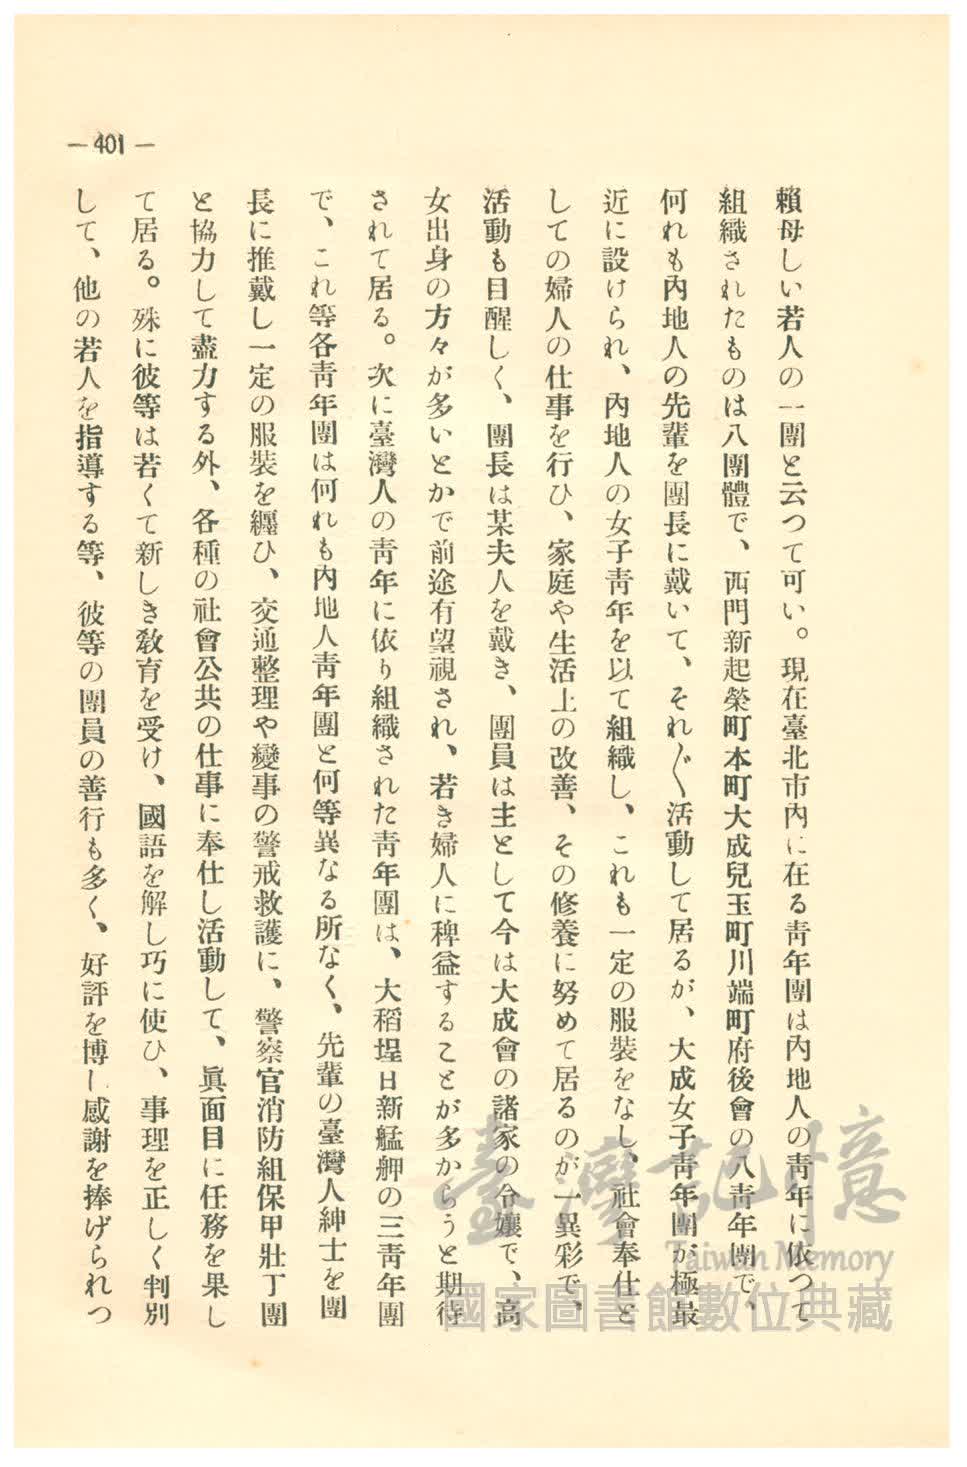 — 401 —
賴母しい若人の一團と云つて可い。現在臺北市內に在る靑年團は內地人の靑年に依つて
組織されたものは八團體で、西門新起榮町本町大成兒玉町川端町府後會の八靑年團で、
何れも內地人の先輩を團長に戴いて、それ〴〵活動して居るが、大成女子靑年團が極最
近に設けられ、內地人の女子靑年を以て組織し、これも一定の服裝をなし、社會奉仕と
しての婦人の仕事を行ひ、家庭や生活上の改善、その修養に努めて居るのが一異彩で、
活動も目醒しく、團長は某夫人を戴き、團員は主として今は大成會の諸家の令孃で、高
女出身の方々が多いとかで前途有望視され、若き婦人に稗益することが多からうと期待
されて居る。次に臺灣人の靑年に依り組織された靑年團は、大稻埕日新艋舺の三靑年團
で、これ等各靑年團は何れも內地人靑年團と何等異なる所なく、先輩の臺灣人紳士を團
長に推戴し一定の服裝を纒ひ、交通整理や變事の警戒救護に、警察官消防組保甲壯丁團
と協力して盡力する外、各種の社會公共の仕事に奉仕し活動して、眞面目に任務を果し
て居る。殊に彼等は若くて新しき敎育を受け、國語を解し巧に使ひ、事理を正しく判別
して、他の若人を指導する等、彼等の團員の善行も多く、好評を博し感謝を捧げられつ
臺灣記憶
Taiwan Memory
國家圖書館數位典藏